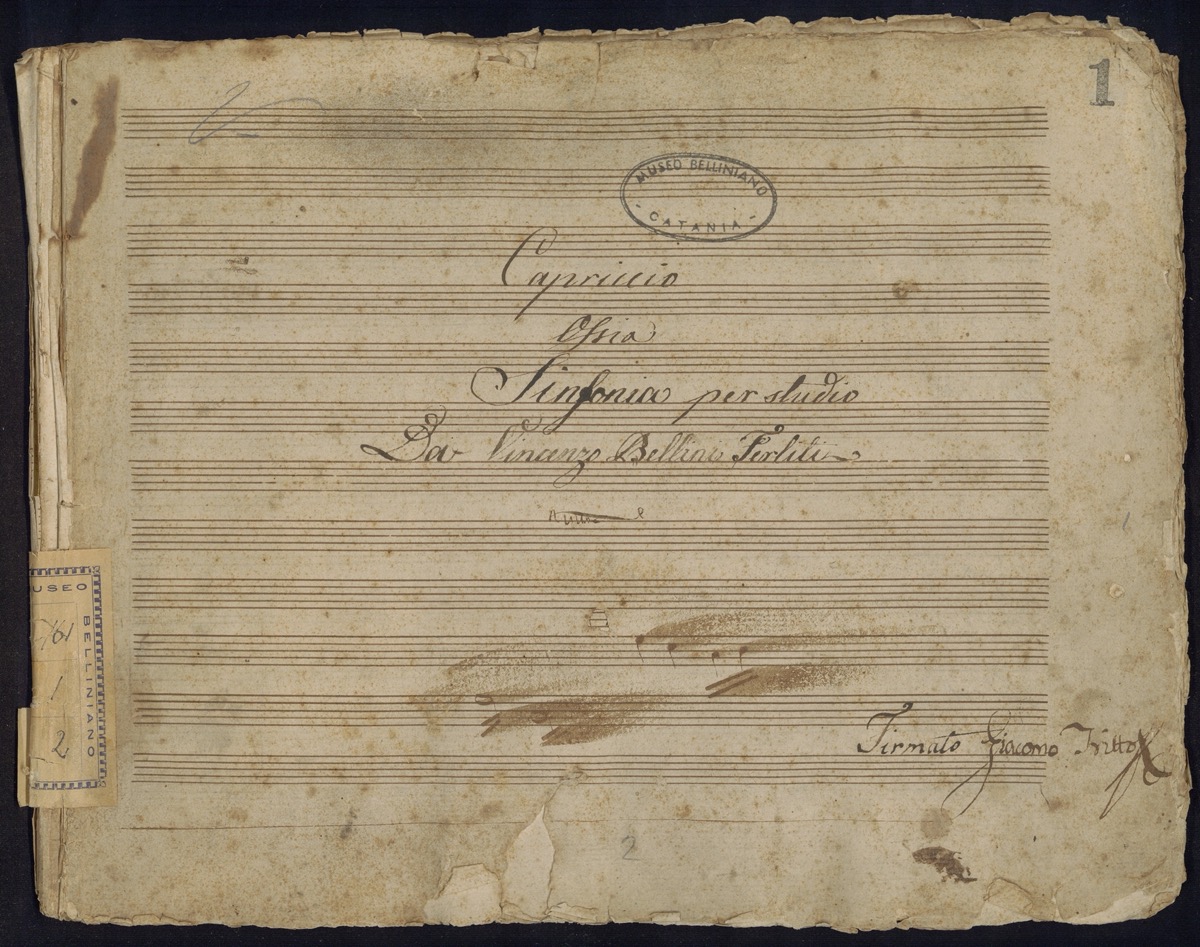 1
MUSEO BELLINIANO
- CATANIA -
Capriccio
Ossia
Sinfonia per studio
Da Vincenzo Bellini Ferliti
Firmato Giacomo Tritto
USEO
BELLINIANO
1
2
2